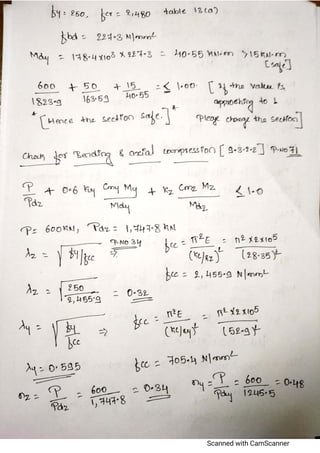 fy = 250, fcr = 2,480 table 13(a)
fbd = 227.3 N/mm²
Mdy = 178.4×10³ × 227.3 = 40.55 kN.m > 15 kN.m [safe]
600/1823.9 + 50/163.59 + 15/40.55 = ≤ 1.00. [If the value is approaching to 1
*[Hence the section safe.]* please change the section]
Check for Bending & axial compression [9.3.2.2] P.NO 71
P/Pdz + 0.6 Ky Cmy My/Mdy + Kz Cmz Mz/Mdz ≤ 1.0
P = 600 kN, Pdz = 1,747.8 kN
λz = √fy/fcc P.NO 34 ⇒ fcc = π²E/(KL/rz)² = π² × 2×10⁵/(28.35)²
fcc = 2,455.9 N/mm²
λz = √250/2,455.9 = 0.32
λy = √fy/fcc ⇒ fcc = π²E/(KL/ry)² = π² × 2×10⁵/(52.9)²
λy = 0.595 fcc = 705.4 N/mm²
nz = P/Pdz = 600/1,747.8 = 0.34 ny = P/Pdy = 600/1245.5 = 0.48
Scanned with CamScanner